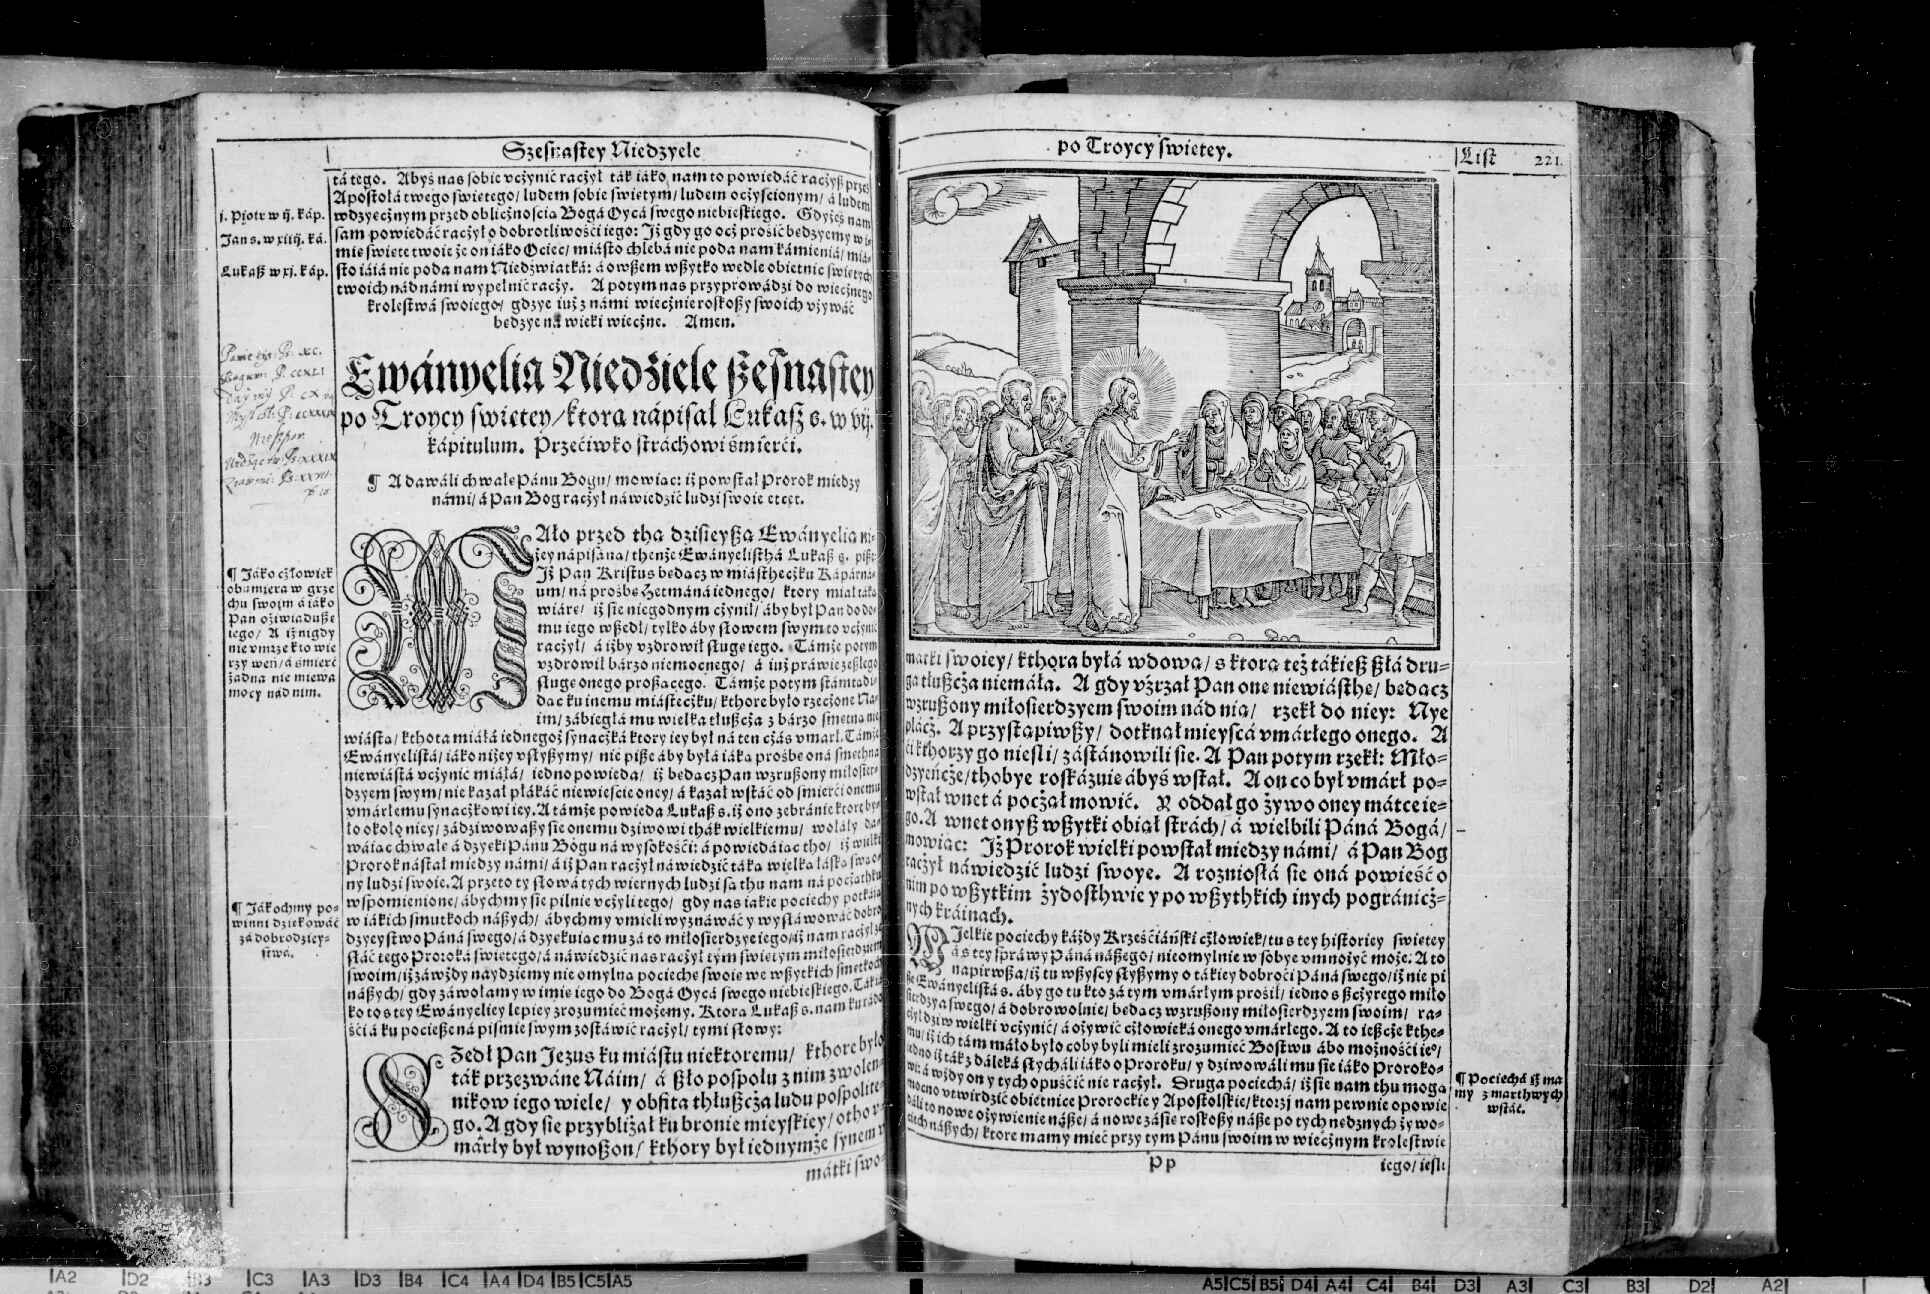 Szesnastey Niedzyele
tá tego. Abyś nas sobie vczynić raczył ták iáko nam to powiedáć raczyß przez
Apostolá twego swietego/ ludem sobie swietym/ ludem oczyscionym/ á ludem
wdzyecznym przed oblicznoscia Bogá Oycá swego niebieskiego. Gdyżeś nam
sam powiedáć raczył o dobrotliwości iego: Jż gdy go ocz prosić bedzyemy w i-
mie swiete twoie że on iáko Ociec/ miásto chlebá nie poda nam kámieniá/ miá-
sto iáiá nie poda nam Niedźwiatká: á owßem wßytko wedle obietnic swietych
twoich nád námi wypełnić raczy. A potym nas przyprowádzi do wiecznego
krolestwá swoiego/ gdzye iuż z námi wiecznie roskoßy swoich vżywáć
bedzye ná wieki wieczne. Amen.
j. Piotr w ij. káp.
Jan s. w xiiij. ká.
Lukaß w xj. káp.
Ewányelia Niedziele ßesnastey
po Troycy swietey/ ktora nápisał Lukaß s. w vij.
kápitulum. Przećiwko stráchowi śmierći.
¶ A dawáli chwałe Pánu Bogu/ mowiac: iż powstał Prorok miedzy
námi/ á Pan Bog raczył náwiedzić ludzi swoie etcet.
MAło przed tha dzisieyßa Ewányelia ni-
żey nápisána/ thenże Ewányelisthá Lukaß s. piße
Jż Pan Kristus bedacz w miástheczku Kápárná-
um/ ná prośbe Hetmáná iednego/ ktory miał táka
wiáre/ iż sie niegodnym czynił/ áby był Pan do do-
mu iego wßedł/ tylko áby słowem swym to vczynić
raczył/ á iżby vzdrowił sługe iego. Támże potym
vzdrowił bárzo niemocnego/ á iuż práwie zeßłego
sługe onego proßacego. Támże potym stámtad i-
dac ku inemu miásteczku/ kthore było rzeczone Na-
im/ zábiegłá mu wielka tłußcza z bárzo smetna nie
wiásta/ kthora miáłá iednegoż synaczká ktory iey był ná ten czás vmarł. Támże
Ewányelistá/ iáko niżey vsłyßymy/ nic piße áby byłá iáka prośbe oná smethna
niewiástá vczynić miáłá/ iedno powieda/ iż bedacz Pan wzrußony miłosier-
dzyem swym/ nie kazał płákáć niewieście oney/ á kazał wstáć od śmierći onemu
vmárłemu synaczkowi iey. A támże powieda Lukaß s. iż ono zebránie ktore by-
ło około niey/ zádziwowaßy sie onemu dziwowi thák wielkiemu/ wołáły dá-
wáiac chwałe á dzyeki Pánu Bogu ná wysokości: á powiedáiac tho/ iż wielki
Prorok nástał miedzy námi/ á iż Pan raczył náwiedzić táka wielka łáska swa o-
ny ludzi swoie. A przeto ty słowá tych wiernych ludzi sa thu nam ná poczathku
wspomienione/ ábychmy sie pilnie vczyli tego/ gdy nas iákie pociechy potkáia
w iákich smutkoch nászych/ ábychmy vmieli wyznáwáć y wysłáwowáć dobro
dzyeystwo Páná swego/ á dzyekuiac mu zá to miłosierdzye iego/ iż nam raczył ze
słáć tego Proroká swietego/ á náwiedzić nas raczył tym swietym miłosierdzyem
swoim/ iż záwżdy naydziemy nie omylna pocieche swoie we wßytkich smetkoch
nászych/ gdy záwołamy w imie iego do Bogá Oycá swego niebieskiego. Táka
ko to s tey Ewányeliey lepiey zrozumieć możemy. Ktora Lukaß s. nam ku rádo
ści á ku pocieße ná piśmie swym zostáwić raczył/ tymi słowy:
¶ Jáko człowiek
obumiera w grze
chu swoim á iáko
Pan ożiwia duße
iego/ A iż nigdy
nie vmrze kto wie
rzy weń/ á śmierć
żadna nie miewa
mocy nád nim.
¶ Jákochmy po-
winni dziekowáć
zá dobrodziey-
stwá.
SZedł Pan Jezus ku miástu niektoremu/ kthore było
ták przezwáne Náim/ á ßło pospołu z nim zwolen-
nikow iego wiele/ y obfita thłußcza ludu pospolite-
go. A gdy sie przybliżał ku bronie mieyskiey/ otho v-
márły był wynoßon/ kthory był iednymże synem v
mátki swo-
po Troycy swietey.
List 221.
mátki swoiey/ kthora byłá wdowa/ s ktora też tákieß ßłá dru-
ga tłußcza niemáła. A gdy vźrzał Pan one niewiásthe/ bedacz
wzrußony miłosierdzyem swoim nád nia/ rzekł do niey: Nye
płácz. A przystapiwßy/ dotknał mieyscá vmárłego onego. A
ći kthorzy go niesli/ zástánowili sie. A Pan potym rzekł: Mło-
dzyeńcze/ thobye roskázuie ábyś wstał. A on co był vmárł po-
wstał wnet á poczał mowić. Y oddał go żywo oney mátce ie-
go. A wnet onyß wßytki obiał strách/ á wielbili Páná Bogá/
mowiac: Jż Prorok wielki powstał miedzy námi/ á Pan Bog
raczył náwiedzić ludzi swoye. A rozniosłá sie oná powieść o
nim po wßytkim żydosthwie y po wßythkich inych pogránicz-
nych kráinach.
WJelkie pociechy káżdy Krześciáński człowiek/ tu s tey historiey swietey
á s tey spráwy Páná nászego/ nieomylnie w sobye vmnożyć może. A to
napirwßa/ iż tu wßyscy słyßymy o tákiey dobroći Páná swego/ iż nie pi
ße Ewányelistá s. áby go tu kto zá tym vmárłym prosił/ iedno s ßczyrego miło
sierdzya swego/ á dobrowolnie/ bedacz wzrußony miłosierdzyem swoim/ ra-
czył dziw wielki vczynić/ á ożywić człowieká onego vmárłego. A to ießcze kthe-
mu/ iż ich tám máło było coby byli mieli zrozumieć Bostwu ábo możności ie°/
iedno iż ták z dáleká słycháli iáko o Proroku/ y dziwowáli mu sie iáko Proroko-
wi: á wżdy on y tych opuśćić nie raczył. Druga pociechá/ iż sie nam thu moga
mocno vtwirdzić obietnice Prorockie y Apostolskie/ ktorzj nam pewnie opowie
dáli to nowe ożywienie náße/ á nowe zásie roskoßy náße po tych nedznych żywo-
ciech nászych/ ktore mamy mieć przy tym Pánu swoim w wiecznym krolestwie
¶ Pociechá iż ma
my z marthwych
wstáć.
P p
iego/ iesli
A2 D2 B3 C3 A3 D3 B4 C4 A4 D4 B5 C5 A5
A5 C5 B5 D4 A4 C4 B4 D3 A3 C3 B3 D2 A2